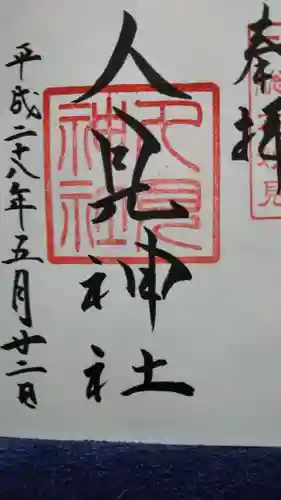 奉拝
人見神社
人見
神社
平成二十八年五月廿二日